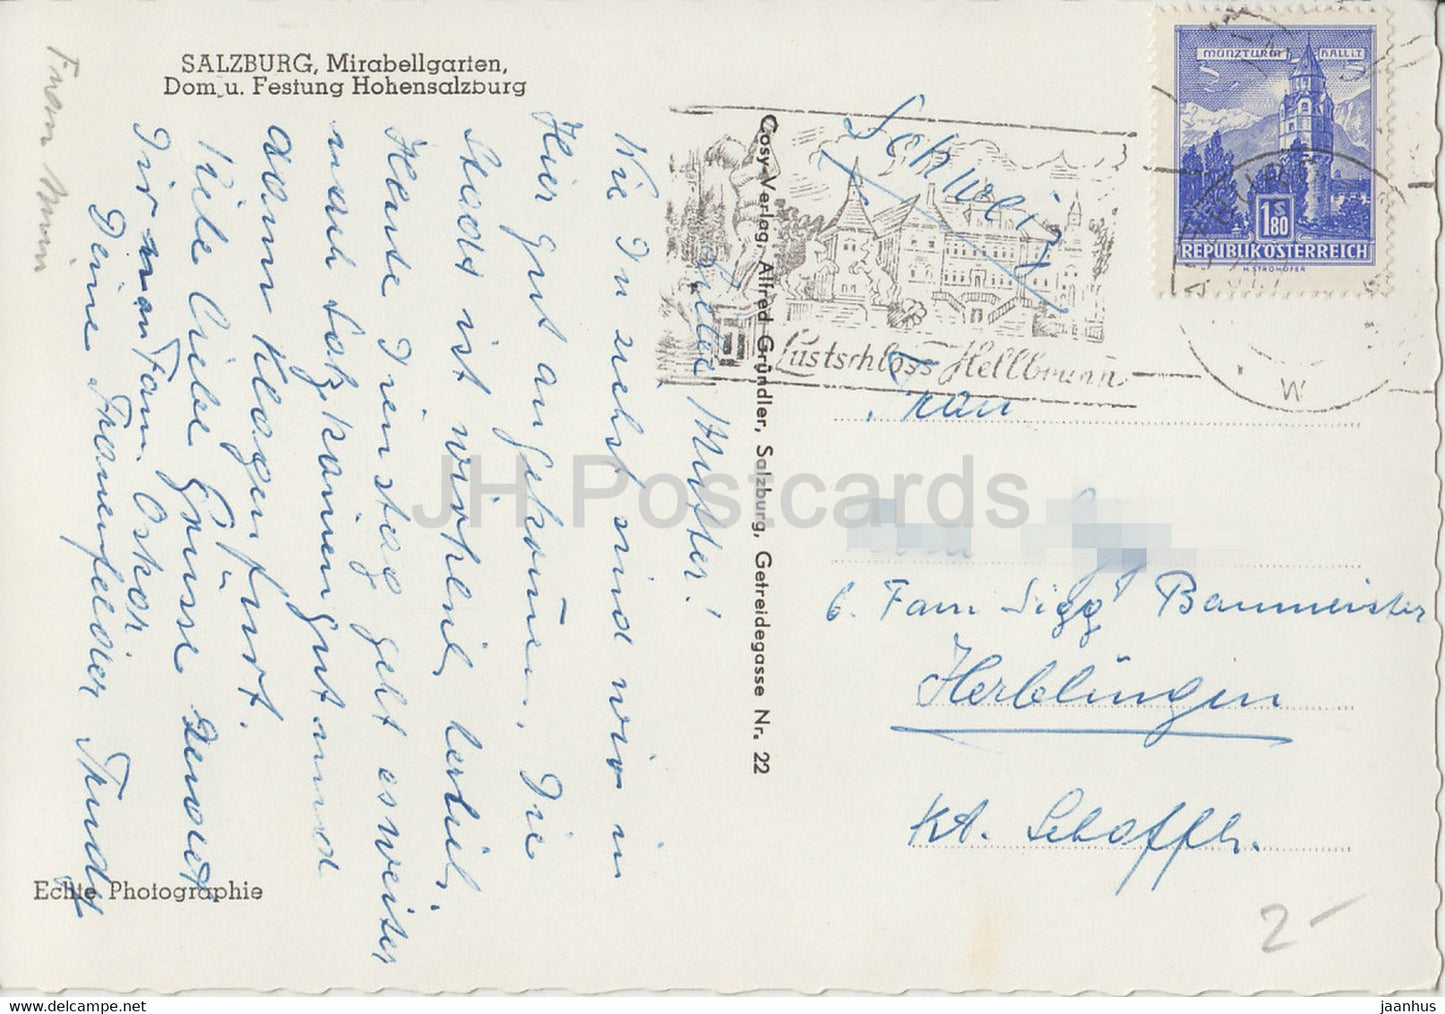 SALZBURG, Mirabellgarten,
Dom u. Festung Hohensalzburg
Liebe Mutter!
Wie Du siehst sind wir in
Hier gut angekommen. Die
Stadt ist wirklich herrlich.
Heute Dienstag geht es weiter
nach und
dann Klagenfurt.
Viele liebe Grüsse sendet
Dir Fam. Oskar
Deine Trudy
Echte Photographie
Cosy-Verlag, Alfred Gründler, Salzburg, Getreidegasse Nr. 22
Schweiz
Lustschloss Hellbrunn
MÜNZTURM HALL i.T.
1S 80
REPUBLIK ÖSTERREICH
H. STROHOFER
W
Frau
b. Fam Sigg Baumeister
Herblingen
Kt. Schaffh.
2-
JH Postcards
www.delcampe.net
jaanhus